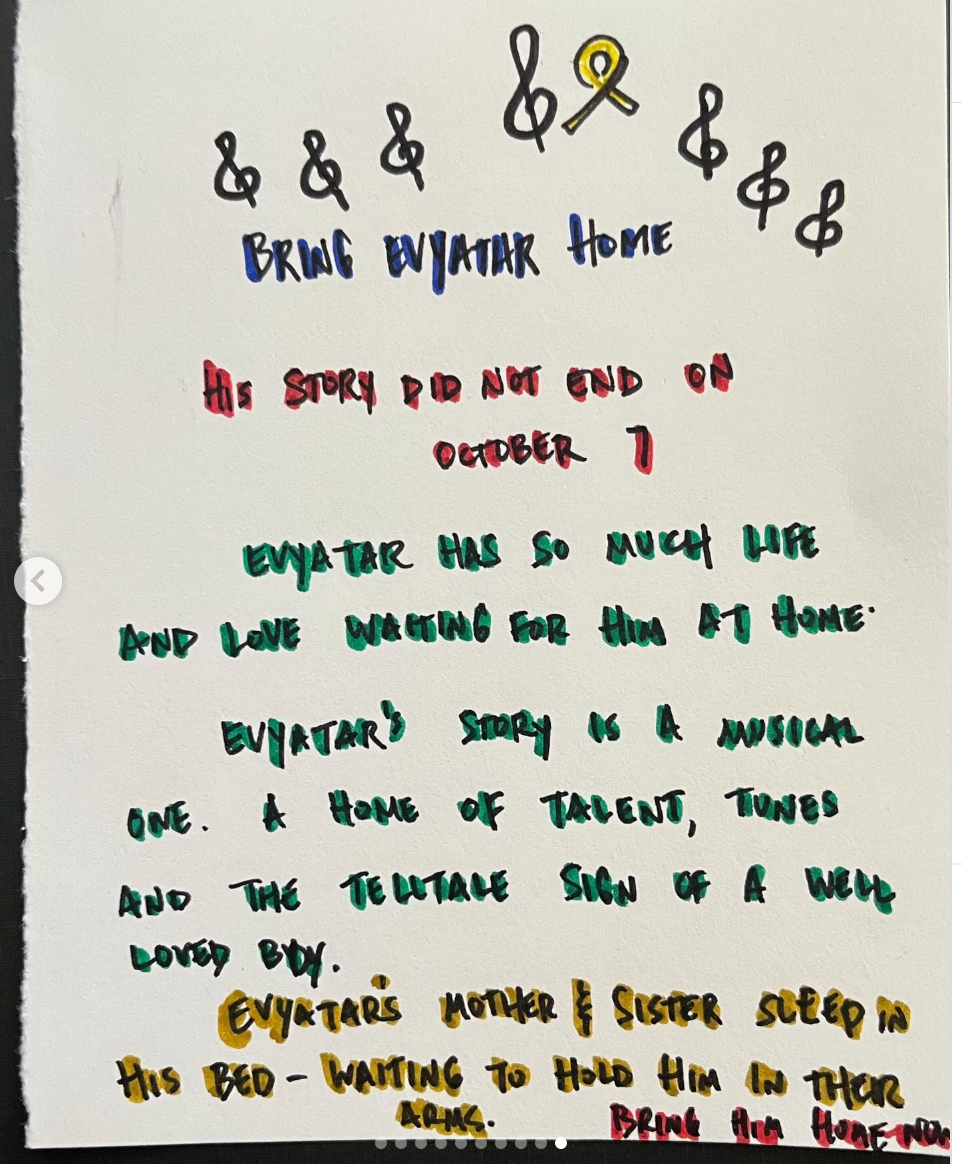 BRING EVYATAR HOME
HIS STORY DID NOT END ON
OCTOBER 7
EVYATAR HAS SO MUCH LIFE
AND LOVE WAITING FOR HIM AT HOME.
EVYATAR'S STORY IS A MUSICAL
ONE. A HOME OF TALENT, TUNES
AND THE TELLTALE SIGN OF A WELL
LOVED BOY.
EVYATAR'S MOTHER & SISTER SLEEP IN
HIS BED - WAITING TO HOLD HIM IN THEIR
ARMS.
BRING HIM HOME NOW